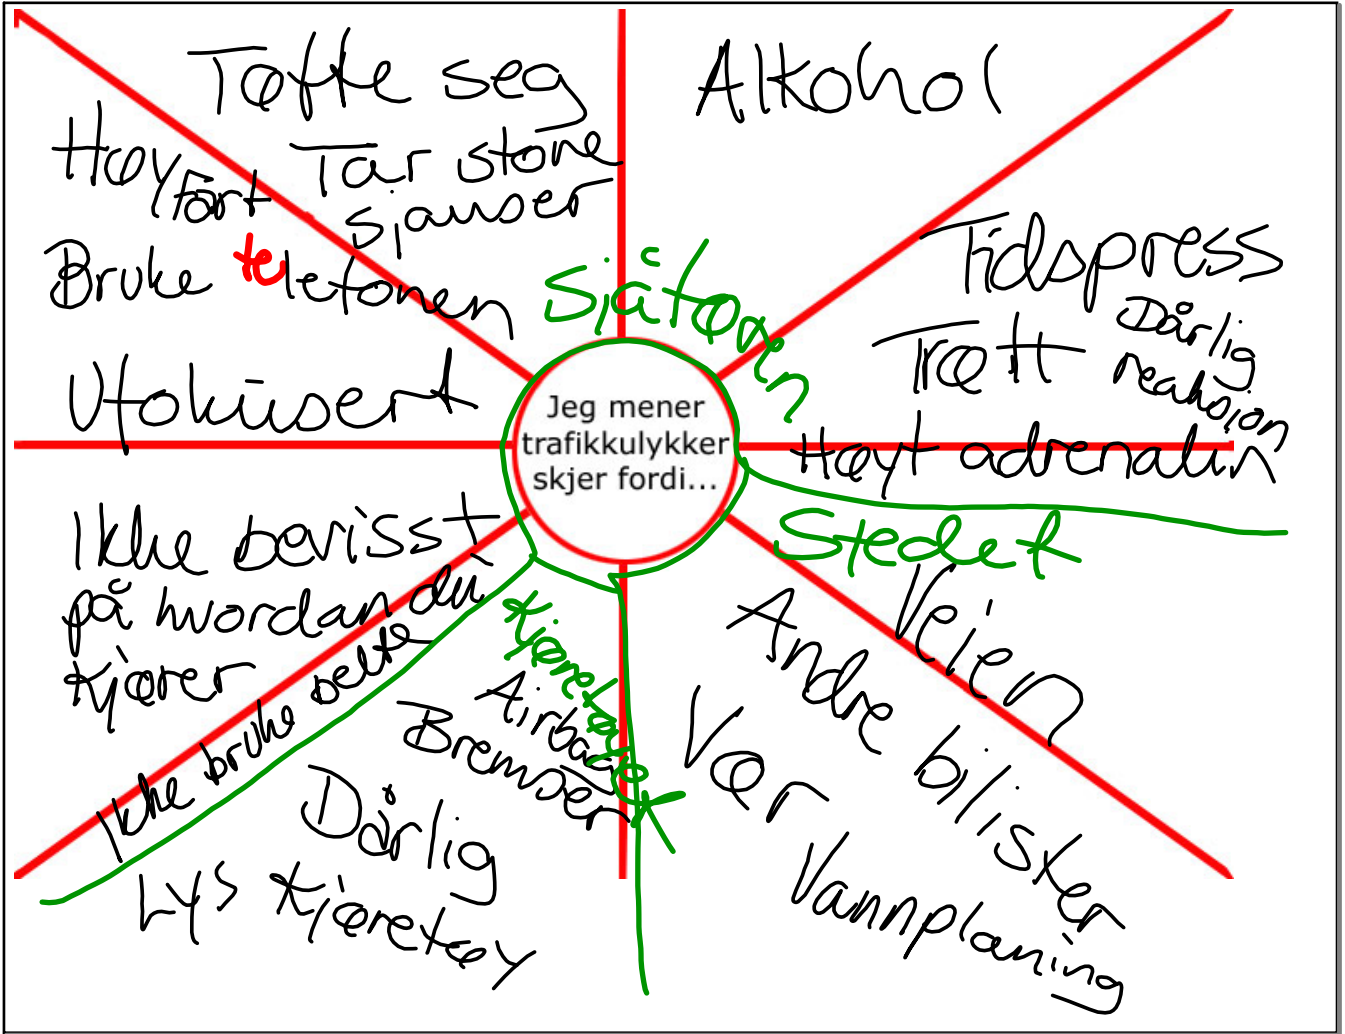 Tøffe seg
Tar store
sjanser
Alkohol
Høy Fart
Bruke telefonen
Ufokusert
Tidspress
Trøtt
Dårlig
reaksjon
Høyt adrenalin
Sjåføren
Jeg mener
trafikkulykker
skjer fordi...
Stedet
Veien
Andre bilister
Vær
Vannplaning
Ikke bevisst
på hvordan du
kjører
Ikke bruke belte
Kjøretøyet
Airbag
Bremser
Dårlig
Kjøretøy
Lys